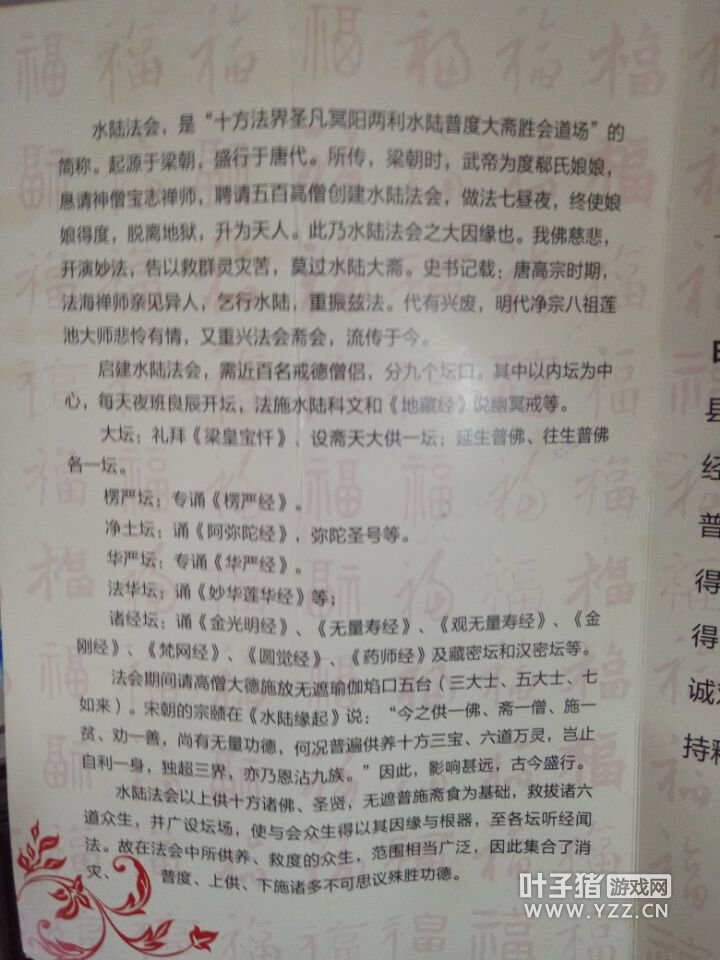 水陆法会，是“十方法界圣凡冥阳两利水陆普度大斋胜会道场”的
简称。起源于梁朝，盛行于唐代。所传，梁朝时，武帝为度郗氏娘娘，
恳请神僧宝志禅师，聘请五百高僧创建水陆法会，做法七昼夜，终使娘
娘得度，脱离地狱，升为天人。此乃水陆法会之大因缘也。我佛慈悲，
开演妙法，告以救群灵灾苦，莫过水陆大斋。史书记载：唐高宗时期，
法海禅师亲见异人，乞行水陆，重振兹法。代有兴废，明代净宗八祖莲
池大师悲怜有情，又重兴法会斋会，流传于今。
启建水陆法会，需近百名戒德僧侣，分九个坛口。其中以内坛为中
心，每天夜班良辰开坛，法施水陆科文和《地藏经》说幽冥戒等。
大坛；礼拜《梁皇宝忏》、设斋天大供一坛；延生普佛、往生普佛
各一坛。
楞严坛；专诵《楞严经》。
净土坛；诵《阿弥陀经》，弥陀圣号等。
华严坛；专诵《华严经》。
法华坛；诵《妙华莲华经》等；
诸经坛；诵《金光明经》、《无量寿经》、《观无量寿经》、《金
刚经》、《梵网经》、《圆觉经》、《药师经》及藏密坛和汉密坛等。
法会期间请高僧大德施放无遮瑜伽焰口五台（三大士、五大士、七
如来）。宋朝的宗赜在《水陆缘起》说：“今之供一佛、斋一僧、施一
贫、劝一善，尚有无量功德，何况普遍供养十方三宝、六道万灵，岂止
自利一身，独超三界，亦乃恩沾九族。”因此，影响甚远，古今盛行。
水陆法会以上供十方诸佛、圣贤，无遮普施斋食为基础，救拔诸六
道众生，并广设坛场，使与会众生得以其因缘与根器，至各坛听经闻
法。故在法会中所供养、救度的众生，范围相当广泛，因此集合了消
灾、 普度、上供、下施诸多不可思议殊胜功德。
县
经
普
得
得
诚
持
叶子猪游戏网
www.YZZ.CN